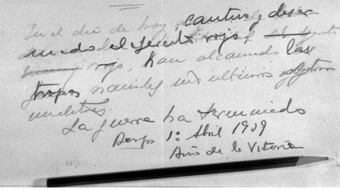 En el día de hoy, cautivo y desar
mado el ejército rojo,
rojo, han alcanzado las
tropas nacionales sus últimos objetivos
militares.
La guerra ha terminado
Burgos 1º Abril 1939
Año de la Victoria